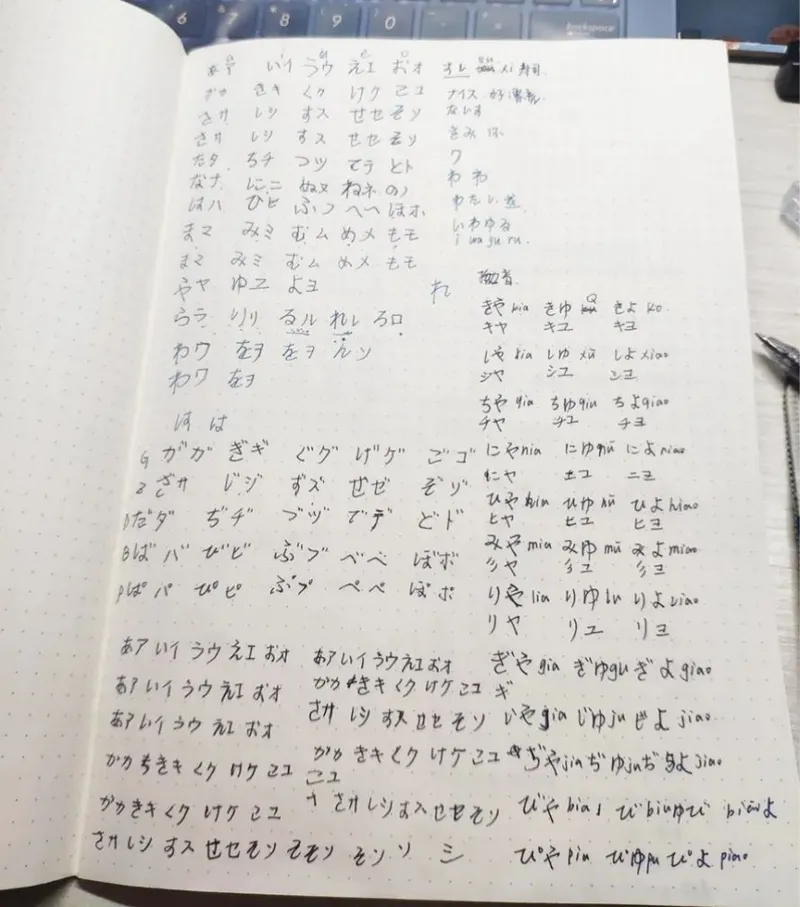 6 7 8 9 0
backspace
a i u e o
あア いイ うウ えエ おオ
かカ きキ くク けケ こコ
さサ しシ すス せセ そソ
さサ しシ すス せセ そソ
たタ ちチ つツ てテ とト
なナ にニ ぬヌ ねネ のノ
はハ ひヒ ふフ へヘ ほホ
まマ みミ むム めメ もモ
まマ みミ むム めメ もモ
やヤ ゆユ よヨ
らラ りリ るル れレ ろロ
わワ をヲ をヲ んン
わワ をヲ
は は
G がガ ぎギ ぐグ げゲ ごゴ
Z ざザ じジ ずズ ぜゼ ぞゾ
D だダ ぢヂ づヅ でデ どド
B ばバ びビ ぶブ べベ ぼボ
P ぱパ ぴピ ぷプ ぺペ ぽポ
あア いイ うウ えエ おオ
あア いイ うウ えエ おオ
あア いイ うウ えエ おオ
かカ ちキキ くク けケ こコ
かカ きキ くク けケ こコ
さサ しシ すス せセ そソ そソ そソ ソ シ
あア いイ うウ えエ おオ
かカ きキ くク けケ こコ
さサ しシ すス せセ そソ
かカ きキ くク けケ こコ
こコ
さサ しシ すス せセ そソ
すし xi 寿司
ナイス
ないす
きみ は
ワ
わ わ
わたし
いわゆる
i wa ju ru
れ
拗音
きや kia きゆ Q きよ ko
キヤ キユ キヨ
しや xia しゆ xü しよ xiao
シヤ シユ シヨ
ちや qia ちゆ qiu ちよ qiao
チヤ チユ チヨ
にや nia にゆ nü によ niao
ニヤ ニユ ニヨ
ひや hia ひゆ hü ひよ hiao
ヒヤ ヒユ ヒヨ
みや mia みゆ mü みよ miao
ミヤ ミユ ミヨ
りや lia りゆ lu りよ liao
リヤ リユ リヨ
ぎや gia ぎゆ gu ぎよ giao
ギ
じや gia じゆ ju じよ jiao
ぢや jia ぢゆ ju ぢよ jiao
びや bia び biu ゆび biao よ
ぴや pia ぴゆ pu ぴよ piao